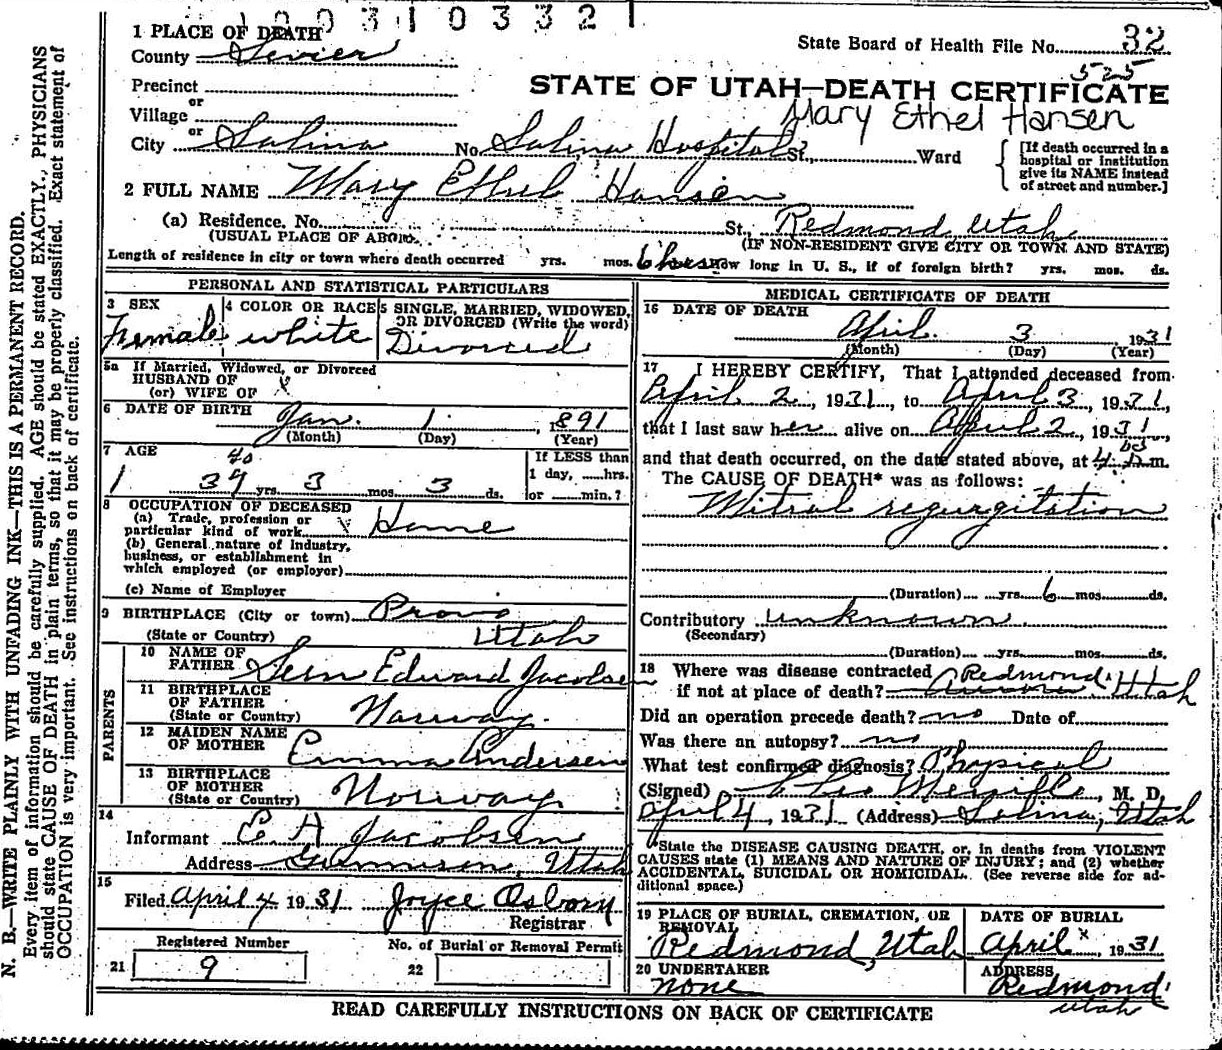 1003103321
1 PLACE OF DEATH
County Sevier
State Board of Health File No. 32
525
Precinct
or
Village
or
STATE OF UTAH—DEATH CERTIFICATE
Mary Ethel Hansen
City Salina No. Salina Hospital St., Ward
[If death occurred in a hospital or institution give its NAME instead of street and number.]
2 FULL NAME Mary Ethel Hansen
(a) Residence, No. St. Redmond Utah
(USUAL PLACE OF ABODE) (IF NON-RESIDENT GIVE CITY OR TOWN AND STATE)
Length of residence in city or town where death occurred yrs. mos. 6 hrs How long in U. S., if of foreign birth? yrs. mos. ds.
PERSONAL AND STATISTICAL PARTICULARS
3 SEX
Female
4 COLOR OR RACE
white
5 SINGLE, MARRIED, WIDOWED, OR DIVORCED (Write the word)
Divorced
5a If Married, Widowed, or Divorced
HUSBAND OF
(or) WIFE OF
6 DATE OF BIRTH Jan. 1 1891
(Month) (Day) (Year)
7 AGE
40
39 yrs. 3 mos. 3 ds.
If LESS than
1 day, hrs.
or min.?
8 OCCUPATION OF DECEASED
(a) Trade, profession or
particular kind of work Home
(b) General nature of industry,
business, or establishment in
which employed (or employer)
(c) Name of Employer
9 BIRTHPLACE (City or town) Provo
(State or Country) Utah
PARENTS
10 NAME OF
FATHER Edward Jacobsen
11 BIRTHPLACE
OF FATHER
(State or Country) Norway
12 MAIDEN NAME
OF MOTHER Emma Andersen
13 BIRTHPLACE
OF MOTHER
(State or Country) Norway
14
Informant E A Jacobsen
Address Gunnison, Utah
15
Filed April 4 1931 Joyce Osborn
Registrar
Registered Number
21 9
No. of Burial or Removal Permit
22
MEDICAL CERTIFICATE OF DEATH
16 DATE OF DEATH
April 3 1931
(Month) (Day) (Year)
17 I HEREBY CERTIFY, That I attended deceased from
April 2, 1931, to April 3, 1931,
that I last saw her alive on April 2, 1931,
and that death occurred, on the date stated above, at 4 m.
The CAUSE OF DEATH* was as follows:
Mitral regurgitation
(Duration) yrs. 6 mos. ds.
Contributory unknown
(Secondary)
(Duration) yrs. mos. ds.
18 Where was disease contracted Redmond
if not at place of death? Aurora Utah
Did an operation precede death? no Date of
Was there an autopsy? no
What test confirmed diagnosis? Physical
(Signed) M. D.
April 4, 1931 (Address) Salina, Utah
*State the DISEASE CAUSING DEATH, or, in deaths from VIOLENT
CAUSES state (1) MEANS AND NATURE OF INJURY; and (2) whether
ACCIDENTAL, SUICIDAL OR HOMICIDAL. (See reverse side for ad-
ditional space.)
19 PLACE OF BURIAL, CREMATION, OR
REMOVAL
Redmond, Utah
DATE OF BURIAL
April x 1931
20 UNDERTAKER
none
ADDRESS
Redmond
Utah
READ CAREFULLY INSTRUCTIONS ON BACK OF CERTIFICATE
N. B.—WRITE PLAINLY WITH UNFADING INK—THIS IS A PERMANENT RECORD.
Every item of information should be carefully supplied. AGE should be stated EXACTLY. PHYSICIANS
should state CAUSE OF DEATH in plain terms, so that it may be properly classified. Exact statement of
OCCUPATION is very important. See instructions on back of certificate.